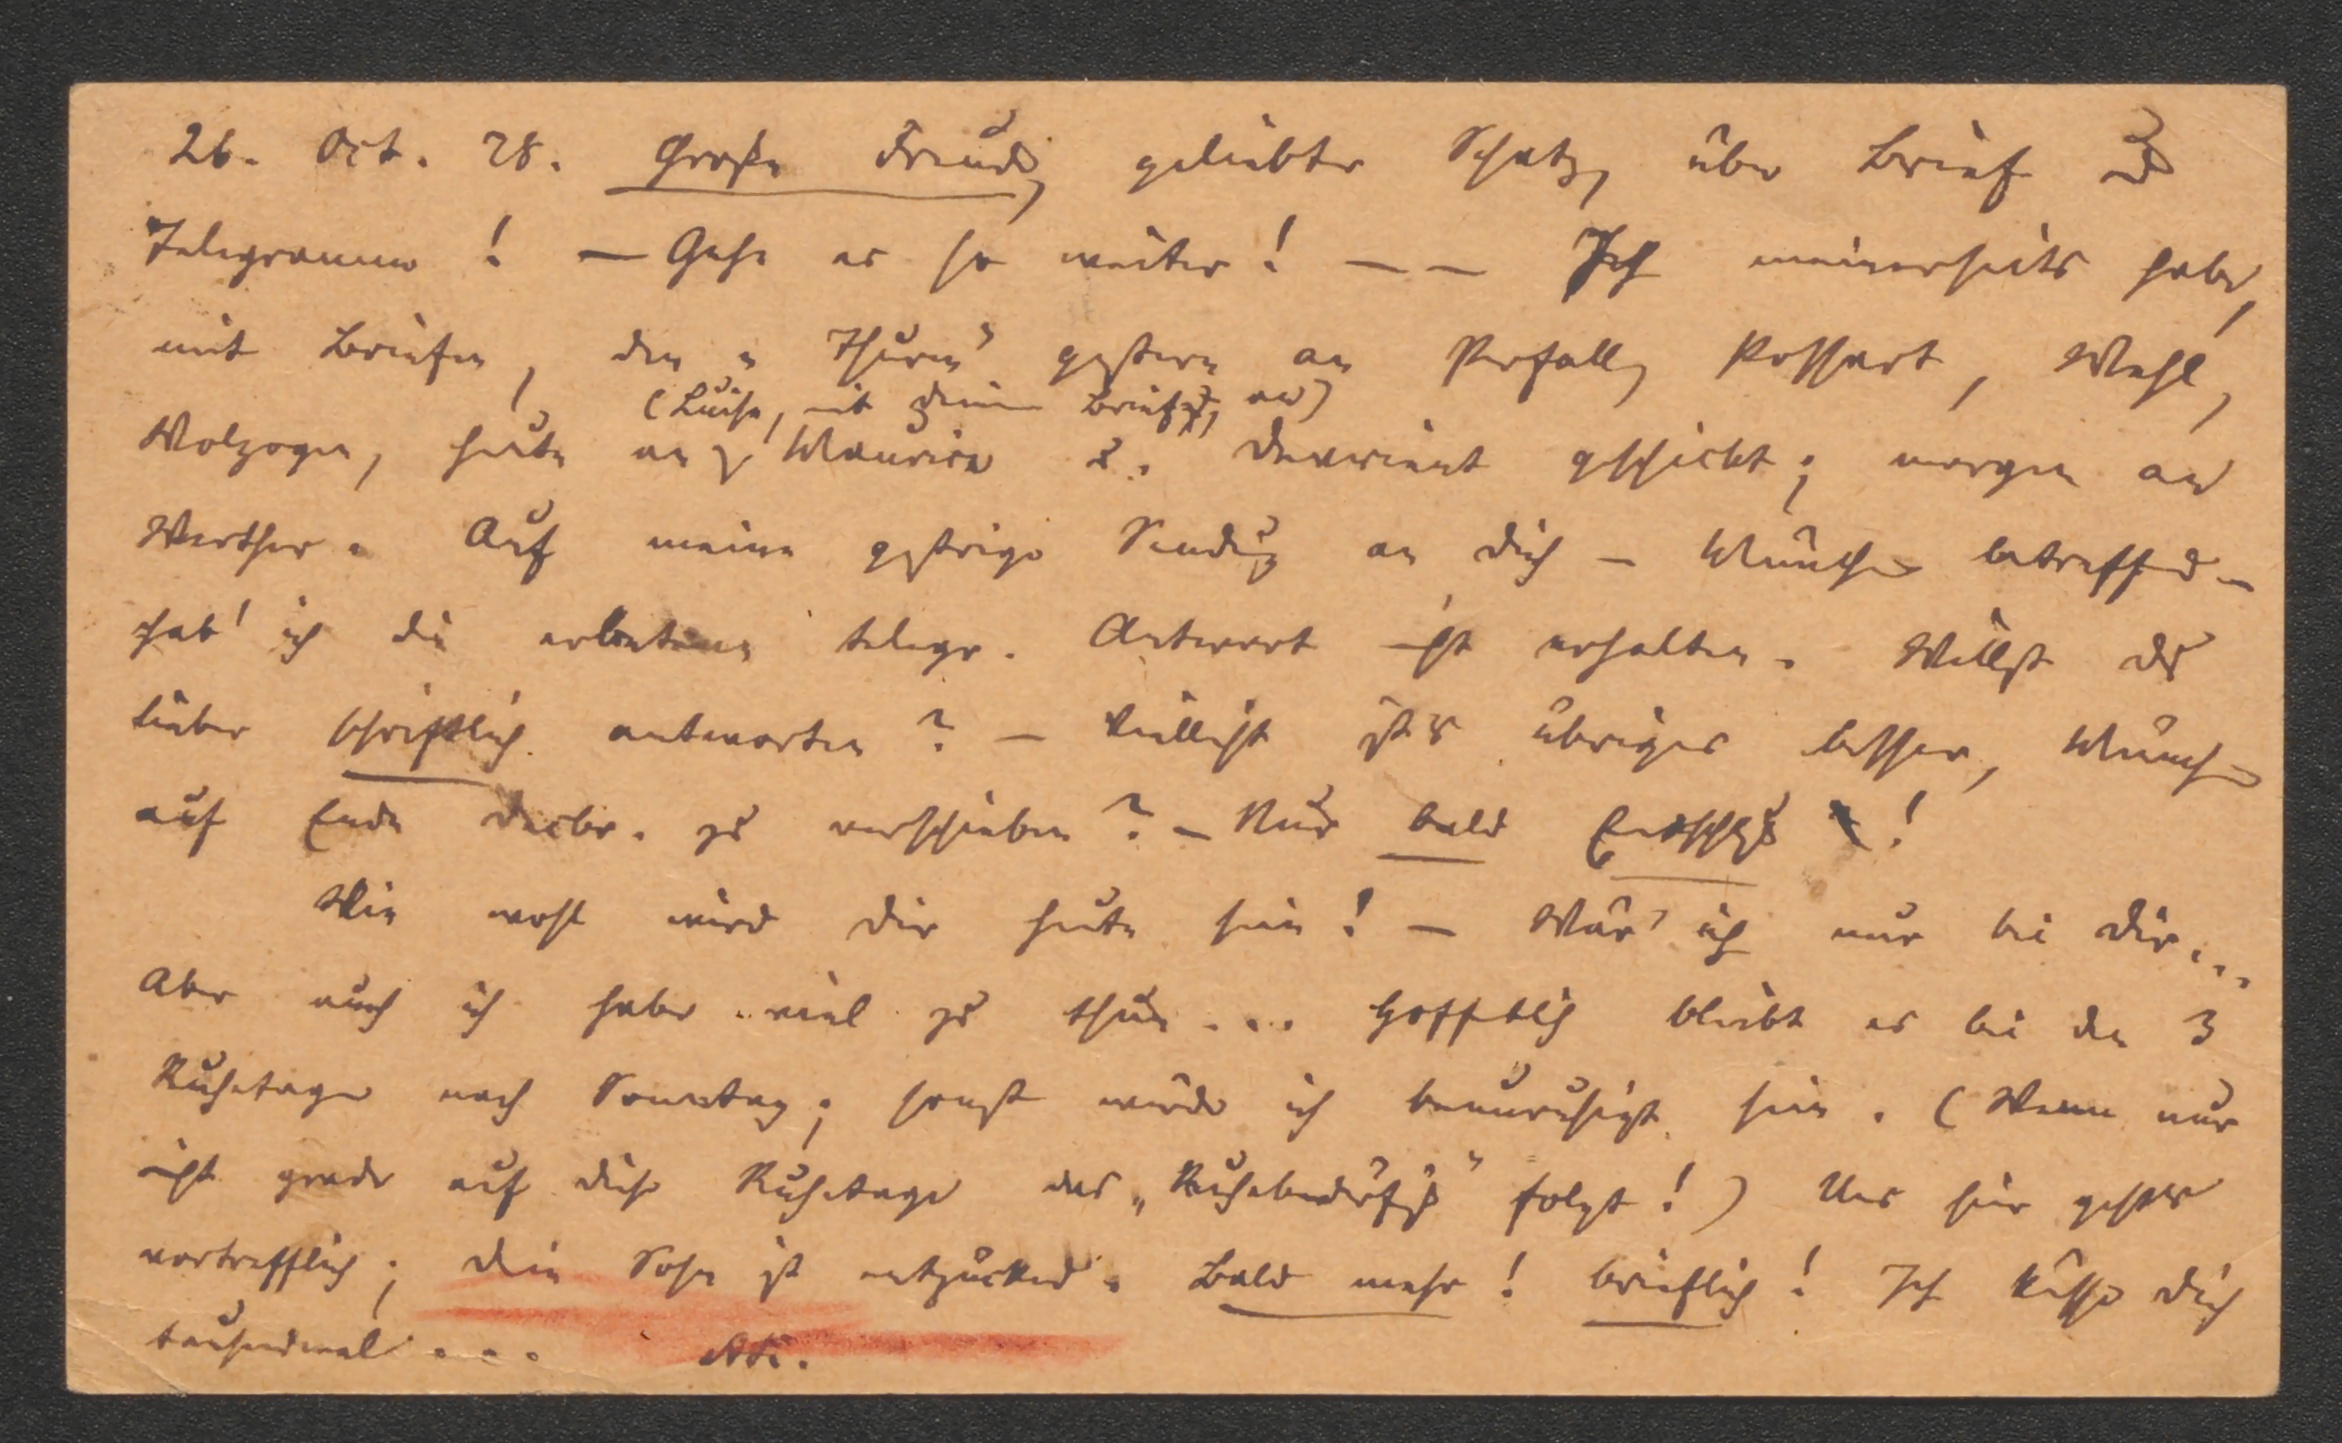 26. Oct. 78. Große Freude, geliebter Schatz, über Brief und
Telegramm! — Gehe es so weiter! — — Ich meinerseits habe,
mit Briefen, den „Thurm" gestern an Perfall, Possart, Wehl,
(Luise, mit Deinem Brief, an)
Wolzogen, heute an Maurice u. Devrient geschickt; morgen an
Werther. Auf meine gestrige Sendung an Dich — München betreffend —
hab' ich die erbetene telegr. Antwort nicht erhalten. Willst Du
lieber schriftlich antworten? — Vielleicht ist's übrigens besser, München
auf Ende Decbr. zu verschieben? — Nur bald Entschluß!
Wie wohl wird Dir heute sein! — Wär' ich nur bei Dir...
Aber auch ich habe viel zu thun.... Hoffentlich bleibt es bei den 3
Ruhetagen nach Sonntag; sonst würde ich beunruhigt sein. (Wenn nur
nicht grade auf diese Ruhetage das „Ruhebedürfniß" folgt!) Uns hier geht's
vortrefflich; Dein Sohn ist entzückend. Bald mehr! brieflich! Ich küsse Dich
tausendmal....